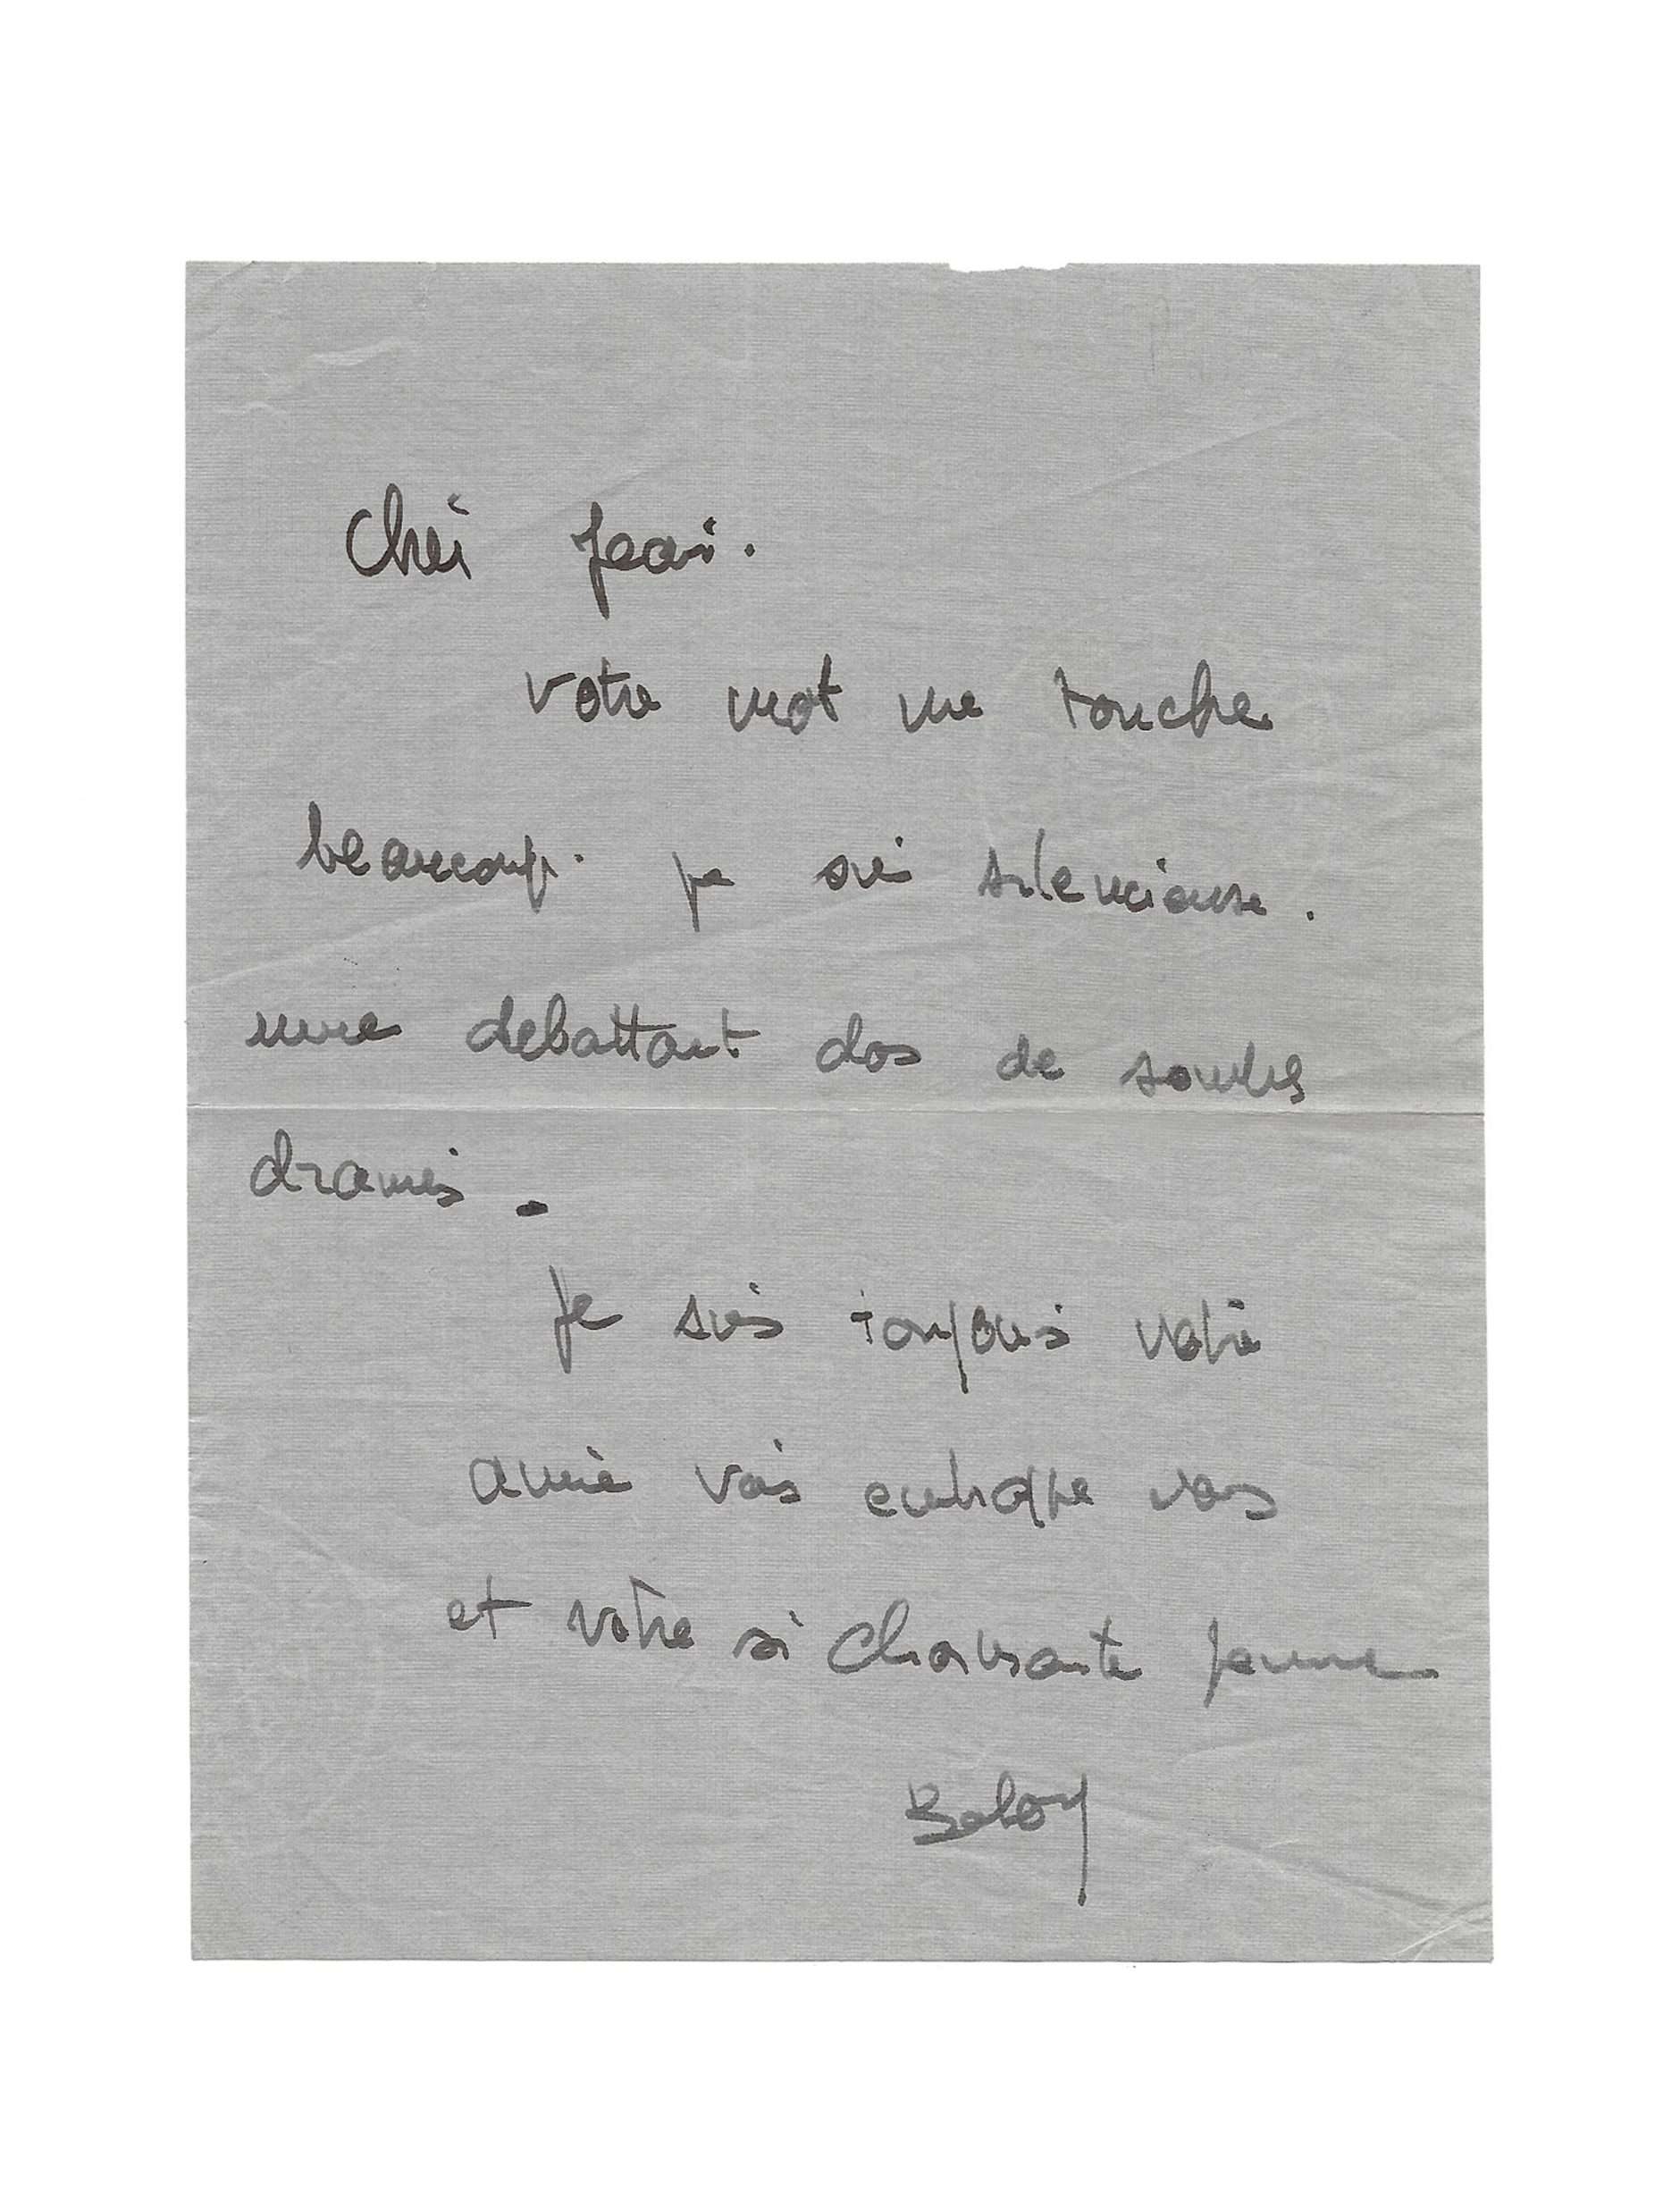 Cher Jean.
votre mot me touche
beaucoup. je suis silencieuse.
me debattant dos de sombres
drames.
Je suis toujours votre
amie vous embrasse vous
et votre si charmante femme
Baboy